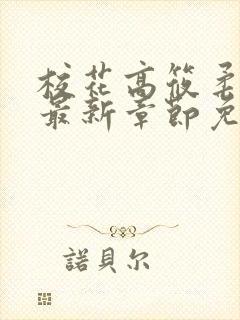 校花高筱柔
最新章節免
諾貝尔